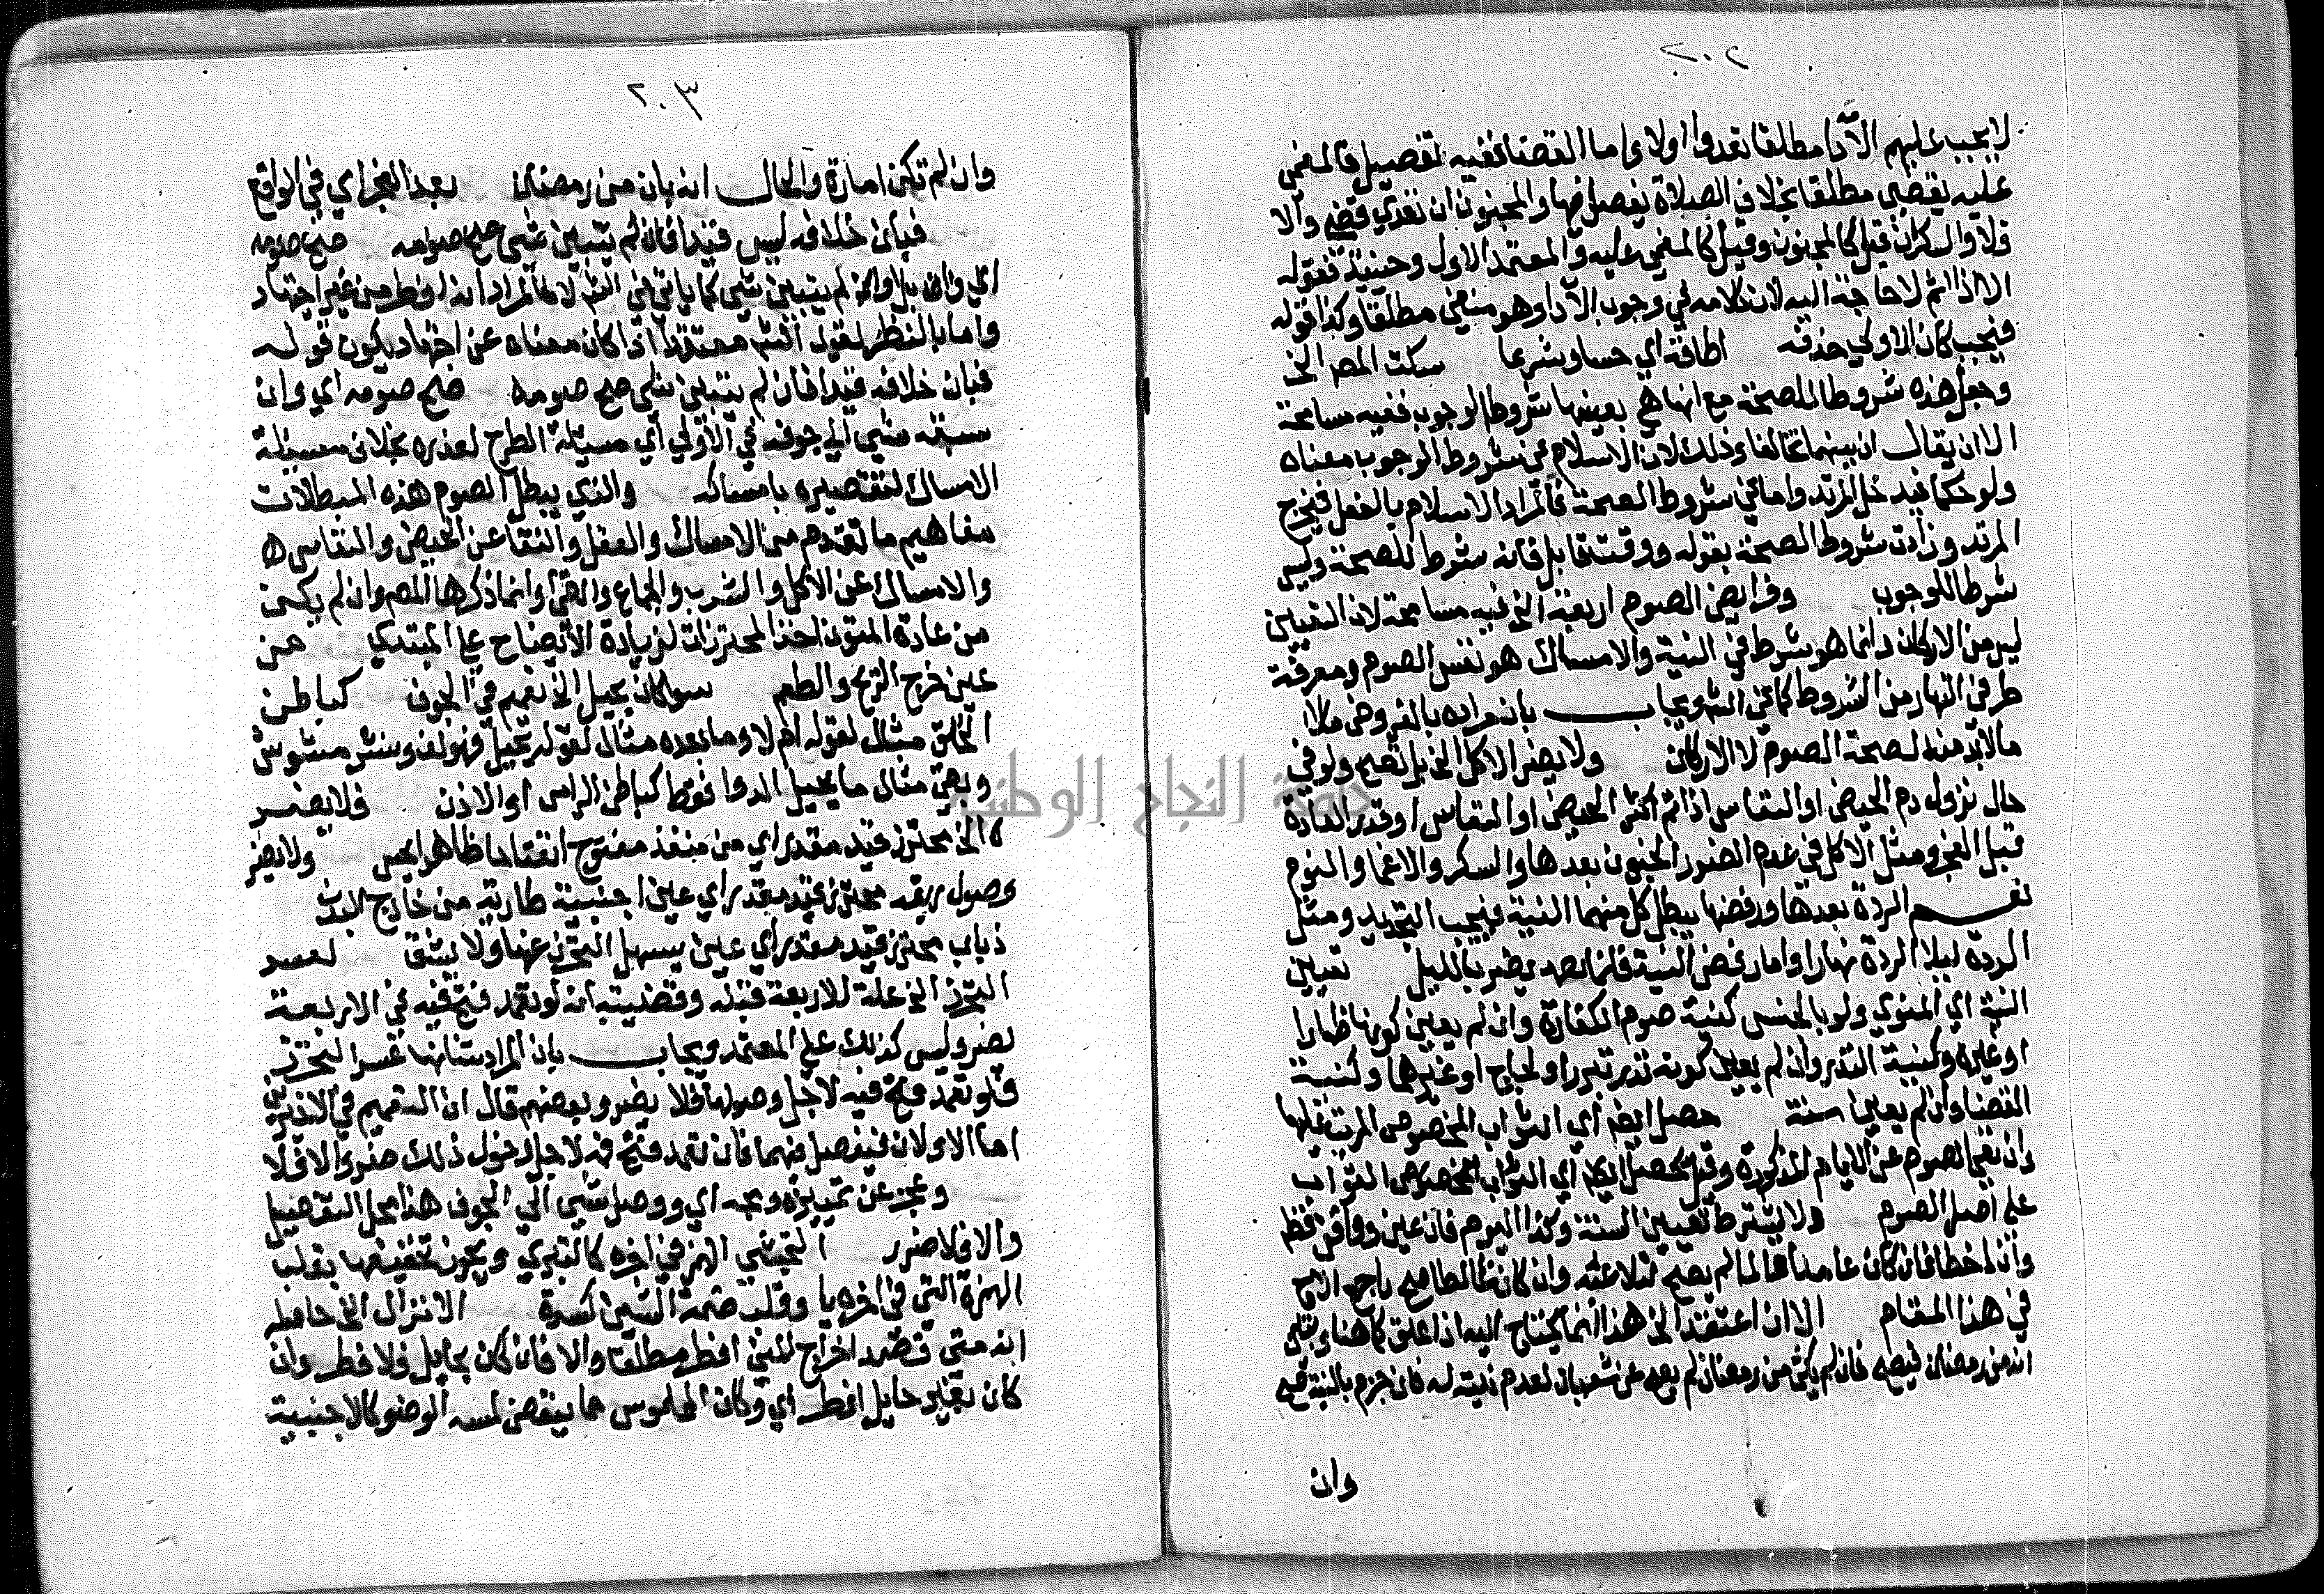 ٢٠٢
لا يجب عليهم الادا مطلقا تعدوا اولا واما القضا ففيه تفصيل فالمغمي
عليه يقضي مطلقا بخلاف الصلاة يفصل فيها والمجنون ان تعدي قضي والا
فلا والسكران قيل كالمجنون وقيل كالمغمي عليه والمعتمد الاول وحينيذ فقوله
الا اذا اثم لا حاجة اليه لان كلامه في وجوب الادا وهو منتفي مطلقا وكذا قوله
فيجب كان الاولي حذفه اطاقة اي حسا وشرعا سكت المص الخ
وجعل هذه شروطا للصحة مع انها هي بعينها شروط الوجوب ففيه مسامحة
الا ان يقال ان بينهما تخالفا وذلك لان الاسلام في شروط الوجوب معناه
ولو حكما فيدخل المرتد واما في شروط الصحة فالمراد الاسلام بالفعل فيخرج
المرتد وزادت شروط الصحة بقوله ووقت قابل فانه شرط للصحة وليس
شرطا للوجوب وفرايض الصوم اربعة الخ فيه مسامحة لان التعيين
ليس من الاركان وانما هو شرط في النية والامساك هو نفس الصوم ومعرفة
طرفي النهار من الشروط كما في الش ويجاب بان مراده بالفروض
مالا بد منه لصحة الصوم لا الاركان ولا يضر الاكل الخ بل تصح ولو في
حال نزول دم الحيض او النفاس اذا تم اكثر الحيض او النفاس او قدر العادة
قبل الفجر ومثل الاكل في عدم الضرر الجنون بعدها والسكر والاغما والنوم
نعم الردة بعدها ورفضها يبطل كل منهما النية فيجب التجديد ومثل
الردة ليلا الردة نهارا واما رفض النية فانما يضر بالليل تعيين
النية اي المنوي ولو بالجنس كنية صوم الكفارة وان لم يعين كونها ظهارا
او غيره وكنية النذر وان لم يعين كونه نذر تبرر او لجاج او غيرهما وكنية
القضا وان لم يعين سنة حصل ايضا اي الثواب المخصوص المرتب عليها
وان نفي الصوم عن الايام المذكورة وقيل يحصل اي الثواب المخصوص الثواب
علي اصل الصوم ولا يشترط تعيين السنة وكذا اليوم فان عين ووافق فظ
وان اخطا فان كان عامدا عالما لم يصح لتلاعبه وان كان غالطا صح راجع الش
في هذا المقام الا ان اعتقد الخ هذا انما يحتاج اليه اذا علق كما هنا
انه من رمضان فيصح فان لم يكن من رمضان لم يصح عن شعبان لعدم نيته له فان جزم بالنية صح
وان
٢٠٣
وان لم تكن امارة والحال انه بان من رمضان بعد الفجر اي في الواقع
فبان خلافه ليس قيدا فان لم يتبين شي صح صومه صح صومه
اي وان بل وان لم يتبين شي كما ياتي في الش لا المراد انه افطر من غير اجتهاد
واما بالنظر لقول الش معتقدا اذا كان معناه عن اجتهاد يكون قوله
فبان خلافه قيدا فان لم يتبين شي صح صومه صح صومه اي وان
سبقه شي الي جوفه في الاولي اي مسيلة الطرح لعذره بخلاف مسيلة
الامساك لتقصيره بامساكه والذي يبطل الصوم هذه المبطلات
مفاهيم ما تقدم من الامساك والعقل والنقا عن الحيض والنفاس
والامساك عن الاكل والشرب والجماع والقي وانما ذكرها المص وان لم يكن
من عادة المتون اخذ المحترزات لزيادة الايضاح علي المبتدي من
عين خرج الريح والطعم سوا كان يحيل الخ تعميم في الجوف كباطن
الحلق مثال لقوله ام لا وما بعده مثال لقوله يحيل فهو لف ونشر مشوش
وبقي مثال ما يحيل الدوا فقط كباطن الراس او الاذن فلا يضر
الخ محترز قيد مقدر اي من منفذ مفتوح انفتاحا ظاهرا يحس ولا يضر
وصول ريقه محترز قيد مقدر اي عين اجنبية طارية من خارج البدن
ذباب محترز قيد مقدر اي عين يسهل التحرز عنها ولا يشق لعسر
التحرز الخ علة للاربعة قبله وقضيته انه لو تعمد فتح فيه في الاربعة
يضر وليس كذلك علي المعتمد ويجاب بان المراد شانها عسر التحرز
فلو تعمد فتح فيه لاجل وصولها فلا يضر وبعضهم قال ان التعميم في الاخيرين
اما الاولان فيفصل فيهما فان تعمد فتح فيه لاجل دخول ذلك ضر والا فلا
وعجز عن تمييزه ومجه اي ووصل شي الي الجوف هذا محل التفصيل
والا فلا ضرر التجشي الهمز في اخره كالتبري ويجوز تخفيفها بقلب
الهمزة التي في اخره يا وقلب ضمة الشين كسرة الانزال الخ حاصله
انه متي قصد اخراج المني افطر مطلقا والا فان كان بحايل فلا فطر وان
كان بغير حايل افطر اي وكان الملموس مما ينقض لمسه الوضو كالاجنبية
جامعة النجاح الوطنية